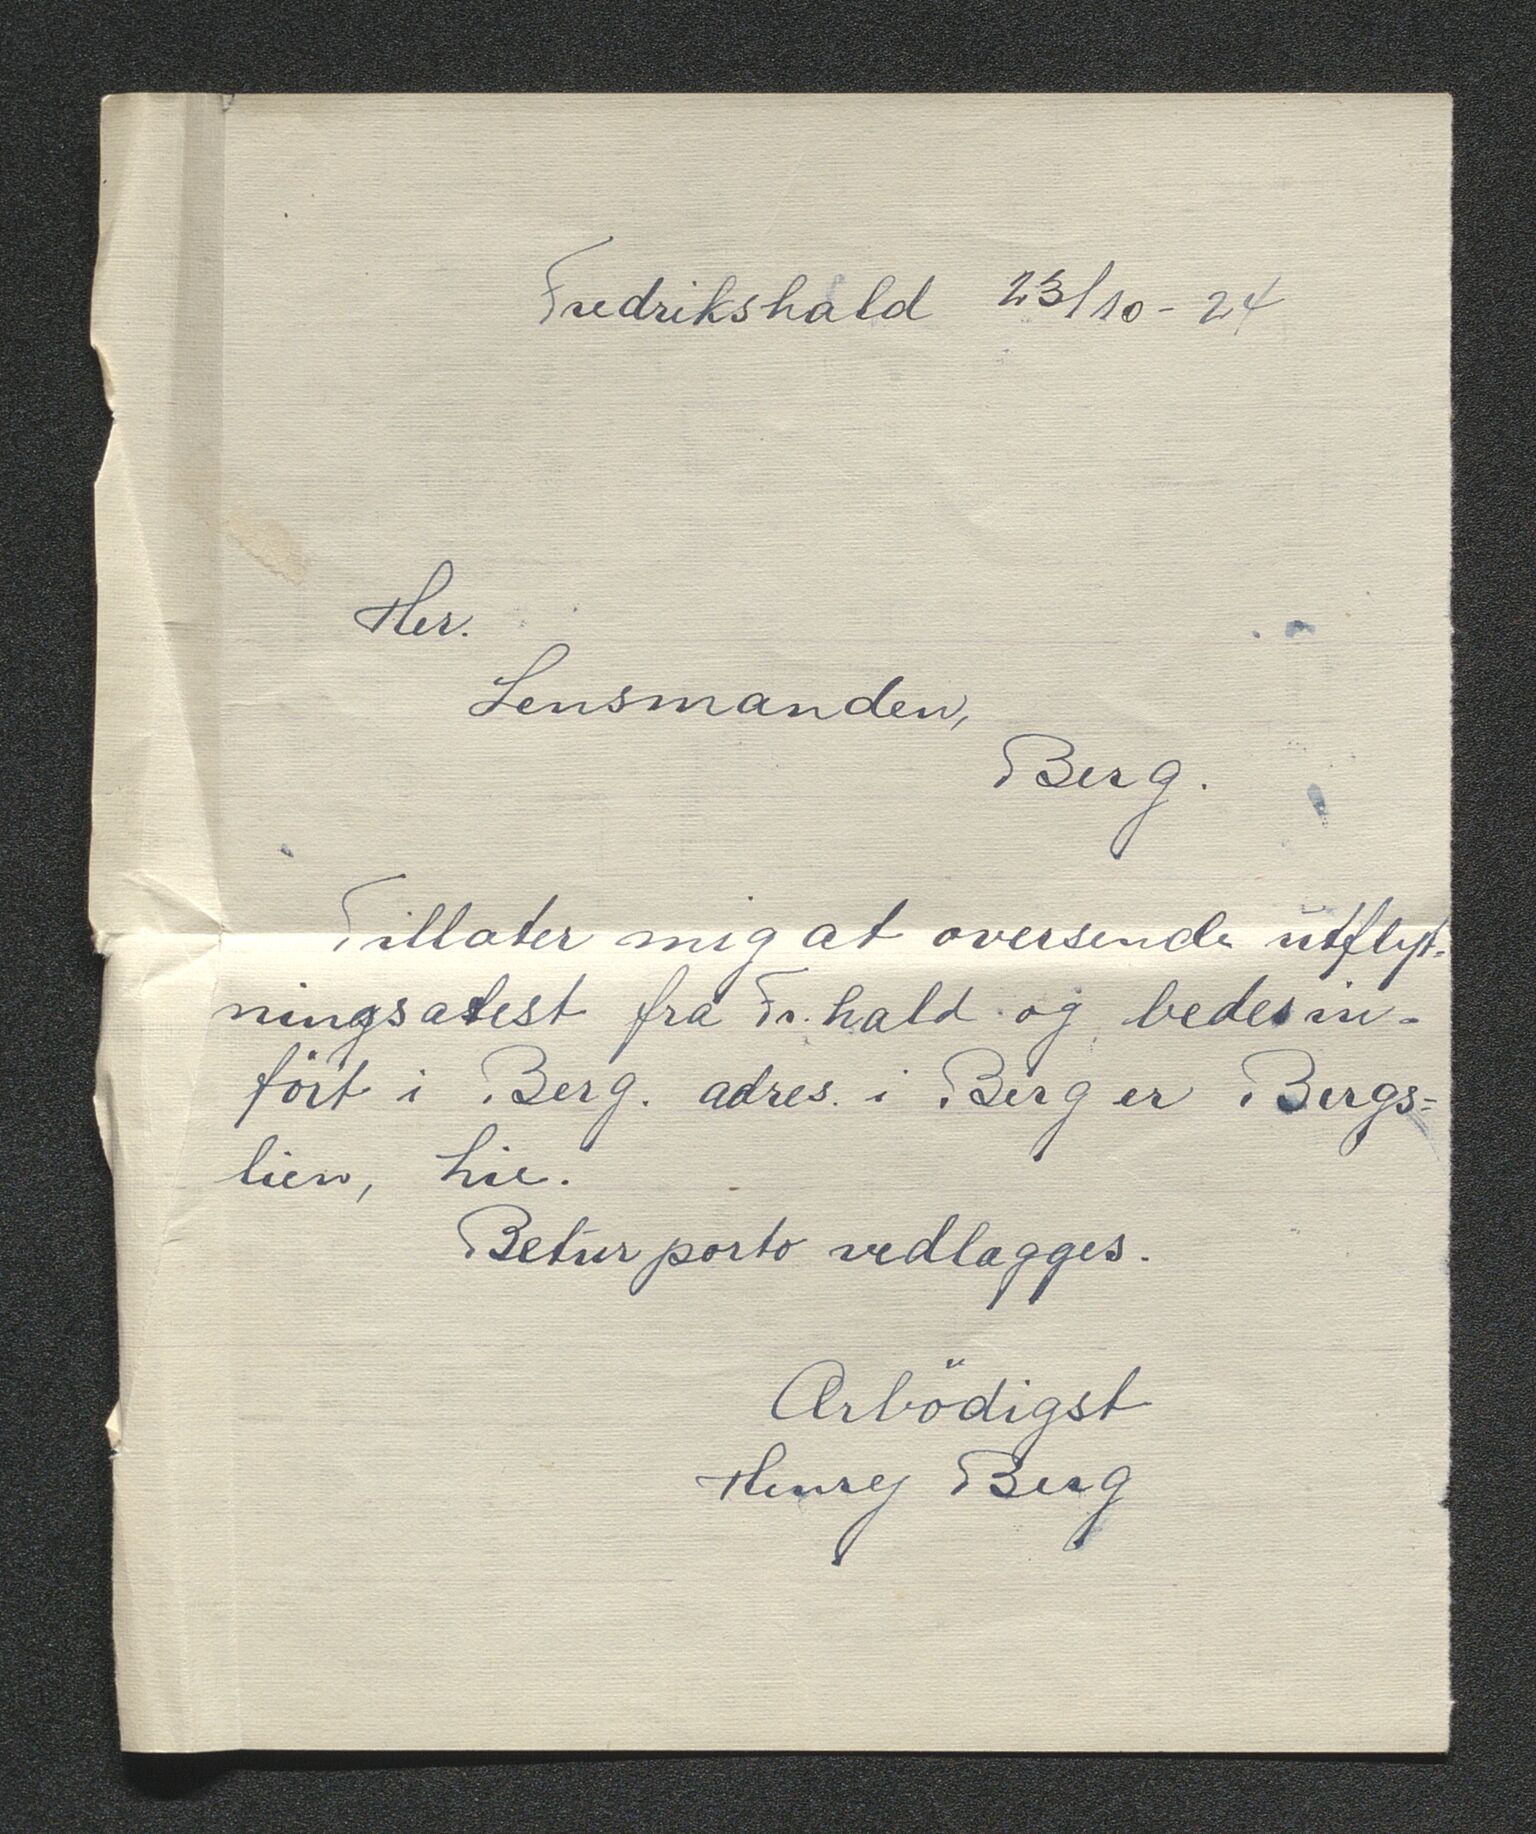 Fredrikshald 23/10-24
Her.
Lensmanden,
Berg.
Tillater mig at oversende utflyt-
ningsatest fra Fr.hald og bedes in-
fört i Berg. adres. i Berg er Bergs=
lien, hie.
Retur porto vedlagges.
Ærbödigst
Henry Berg